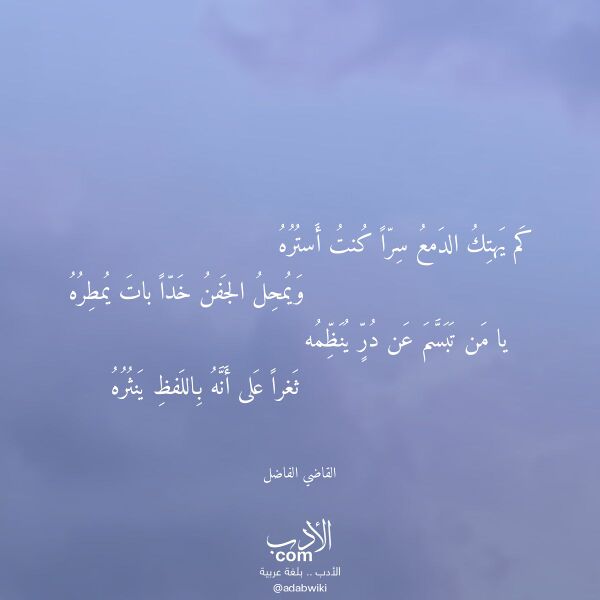 كَم يَهتِكُ الدَمعُ سِرّاً كُنتُ أَستُرُهُ
وَيُمحِلُ الجَفنُ خَدّاً باتَ يُمطِرُهُ
يا مَن تَبَسَّمَ عَن دُرٍّ يُنَظِّمُه
ثَغراً عَلى أَنَّهُ بِاللَفظِ يَنثُرُهُ
القاضي الفاضل
الأدب
com
الأدب .. بلغة عربية
@adabwiki